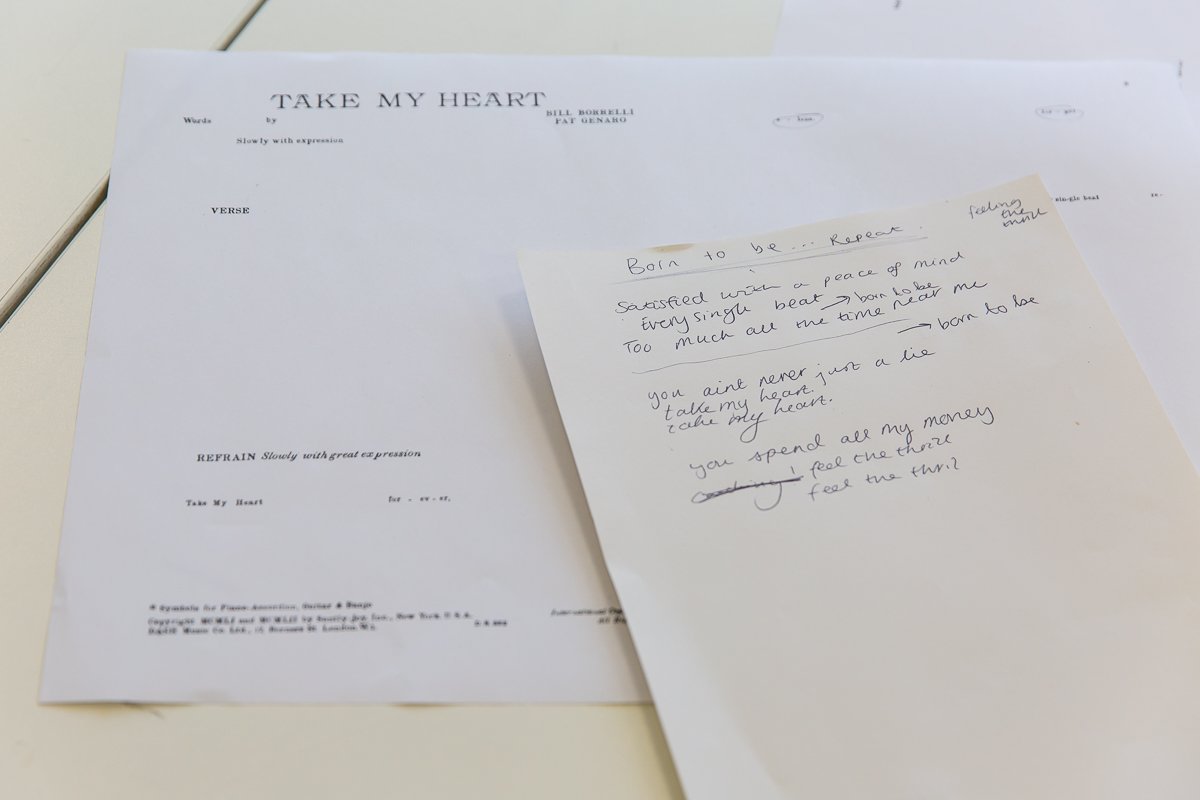 TAKE MY HEART
Words by
BILL BORRELLI
PAT GENARO
Slowly with expression
VERSE
single beat
REFRAIN Slowly with great expression
Take My Heart for - ev - er.
* Symbols for Piano-Accordion, Guitar & Banjo
Copyright MCMLI and MCMLII by Inc., New York U.S.A.
Music Co. Ltd., St. London W.1.
International
All
feeling
the
thrill
Born to be... Repeat.
Satisfied with a peace of mind
Every single beat → born to be
Too much all the time near me
→ born to be
you aint never just a lie
take my heart.
take my heart.
you spend all my money
feel the thrill
feel the thril